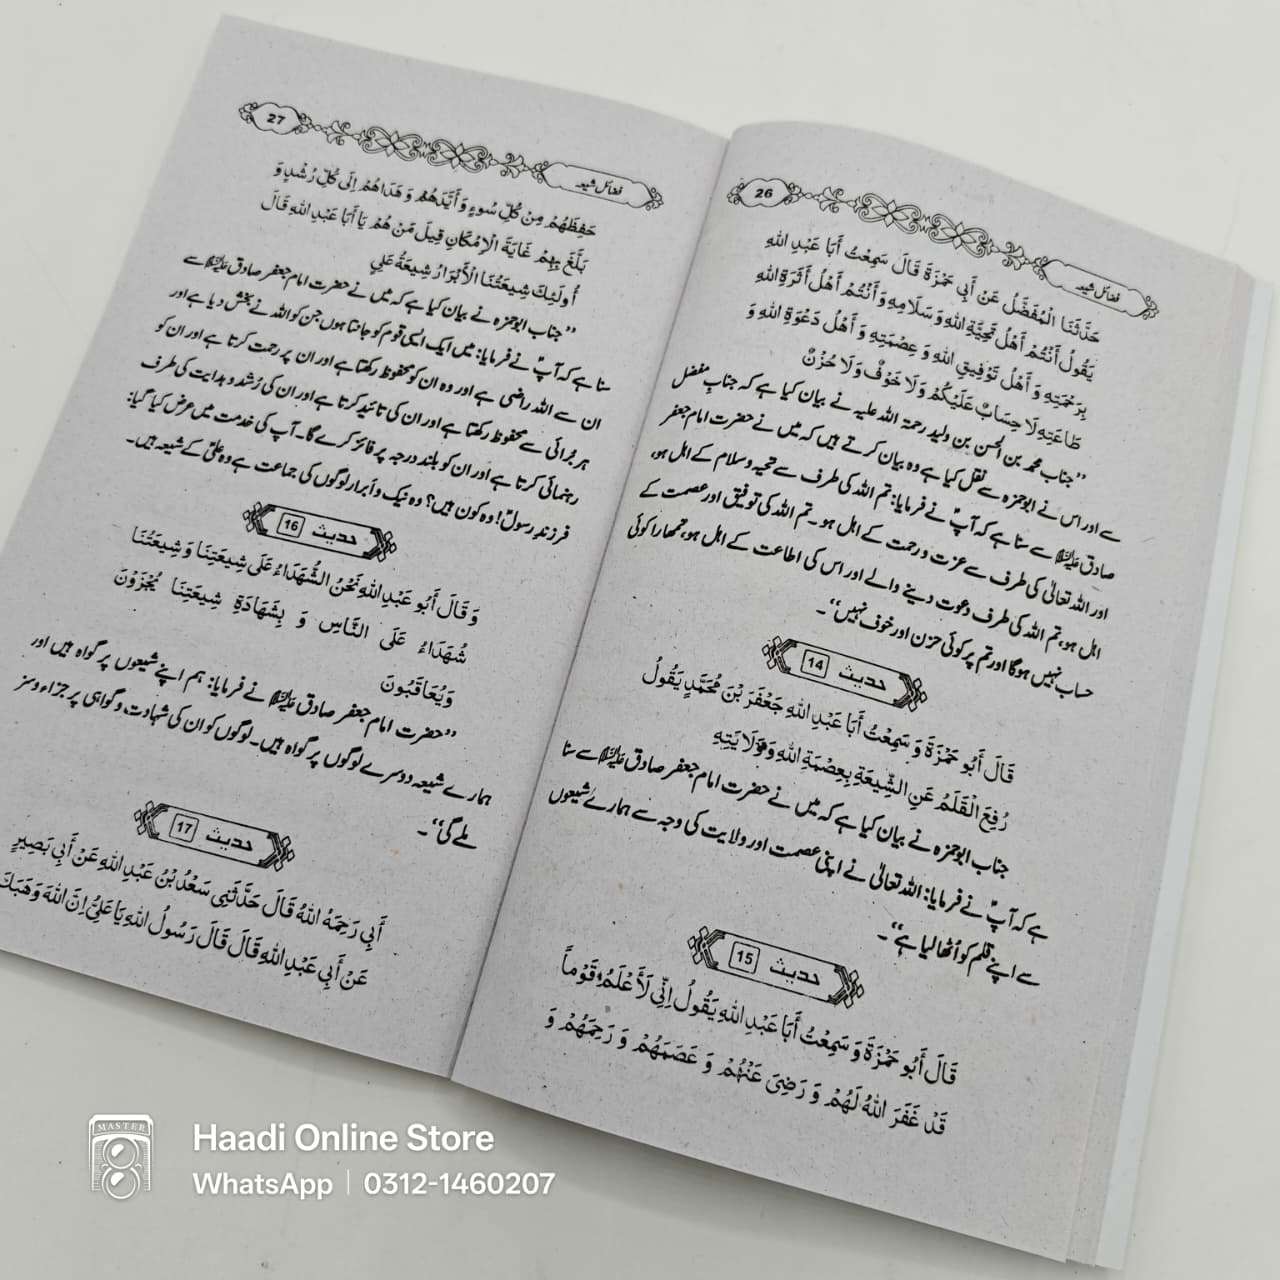 26
فضائل شیعہ
حَدَّثَنَا الْمُفَضَّلُ عَنْ أَبِي حَمْزَةَ قَالَ سَمِعْتُ أَبَا عَبْدِ اللهِ
يَقُولُ أَنْتُمْ أَهْلُ تَحِيَّةِ اللهِ وَ سَلَامِهِ وَ أَنْتُمْ أَهْلُ أَثَرَةِ اللهِ
بِرَحْمَتِهِ وَ أَهْلُ تَوْفِيقِ اللهِ وَ عِصْمَتِهِ وَ أَهْلُ دَعْوَةِ اللهِ وَ
طَاعَتِهِ لَا حِسَابٌ عَلَيْكُمْ وَلَا خَوْفٌ وَلَا حُزْنٌ
’’جناب محمد بن الحسن بن ولید رحمۃ اللہ علیہ نے بیان کیا ہے کہ جناب مفضل
سے اور اس نے ابوحمزہ سے نقل کیا ہے وہ بیان کرتے ہیں کہ میں نے حضرت امام جعفر
صادق علیہ السلام سے سنا ہے کہ آپؑ نے فرمایا: تم اللہ کی طرف سے تحیہ وسلام کے اہل ہو،
اور اللہ تعالیٰ کی طرف سے عزت ورحمت کے اہل ہو۔ تم اللہ کی توفیق اور عصمت کے
اہل ہو، تم اللہ کی طرف دعوت دینے والے اور اس کی اطاعت کے اہل ہو، تمھارا کوئی
حساب نہیں ہوگا اور تم پر کوئی حزن اور خوف نہیں‘‘۔
حدیث 14
قَالَ أَبُو حَمْزَةَ وَ سَمِعْتُ أَبَا عَبْدِ اللهِ جَعْفَرَ بْنَ مُحَمَّدٍ يَقُولُ
رُفِعَ الْقَلَمُ عَنِ الشِّيعَةِ بِعِصْمَةِ اللهِ وَ وَلَايَتِهِ
جناب ابوحمزہ نے بیان کیا ہے کہ میں نے حضرت امام جعفر صادق علیہ السلام سے سنا
ہے کہ آپؑ نے فرمایا: اللہ تعالیٰ نے اپنی عصمت اور ولایت کی وجہ سے ہمارے شیعوں
سے اپنے قلم کو اُٹھا لیا ہے‘‘۔
حدیث 15
قَالَ أَبُو حَمْزَةَ وَ سَمِعْتُ أَبَا عَبْدِ اللهِ يَقُولُ إِنِّي لَأَعْلَمُ قَوْماً
قَدْ غَفَرَ اللهُ لَهُمْ وَ رَضِيَ عَنْهُمْ وَ عَصَمَهُمْ وَ رَحِمَهُمْ وَ
27
فضائل شیعہ
حَفِظَهُمْ مِنْ كُلِّ سُوءٍ وَ أَيَّدَهُمْ وَ هَدَاهُمْ إِلَى كُلِّ رُشْدٍ وَ
بَلَّغَ بِهِمْ غَايَةَ الْإِمْكَانِ قِيلَ مَنْ هُمْ يَا أَبَا عَبْدِ اللهِ قَالَ
أُولَئِكَ شِيعَتُنَا الْأَبْرَارُ شِيعَةُ عَلِيٍّ
’’جناب ابوحمزہ نے بیان کیا ہے کہ میں نے حضرت امام جعفر صادق علیہ السلام سے
سنا ہے کہ آپؑ نے فرمایا: میں ایک ایسی قوم کو جانتا ہوں جن کو اللہ نے بخش دیا ہے اور
ان سے اللہ راضی ہے اور وہ ان کو محفوظ رکھتا ہے اور ان پر رحمت کرتا ہے اور ان کو
ہر بُرائی سے محفوظ رکھتا ہے اور ان کی تائید کرتا ہے اور ان کی رُشد وہدایت کی طرف
رہنمائی کرتا ہے اور ان کو بلند درجہ پر فائز کرے گا۔ آپ کی خدمت میں عرض کیا گیا:
فرزندِ رسولؐ! وہ کون ہیں؟ وہ نیک وابرار لوگوں کی جماعت ہے وہ علیؑ کے شیعہ ہیں۔
حدیث 16
وَ قَالَ أَبُو عَبْدِ اللهِ نَحْنُ الشُّهَدَاءُ عَلَى شِيعَتِنَا وَ شِيعَتُنَا
شُهَدَاءُ عَلَى النَّاسِ وَ بِشَهَادَةِ شِيعَتِنَا يُجْزَوْنَ
وَيُعَاقَبُونَ
’’حضرت امام جعفر صادق علیہ السلام نے فرمایا: ہم اپنے شیعوں پر گواہ ہیں اور
ہمارے شیعہ دوسرے لوگوں پر گواہ ہیں۔ لوگوں کو ان کی شہادت وگواہی پر جزاء وسز
ملے گی‘‘۔
حدیث 17
أَبِي رَحِمَهُ اللهُ قَالَ حَدَّثَنِي سَعْدُ بْنُ عَبْدِ اللهِ عَنْ أَبِي بَصِيرٍ
عَنْ أَبِي عَبْدِ اللهِ قَالَ قَالَ رَسُولُ اللهِ يَا عَلِيُّ إِنَّ اللهَ وَهَبَكَ
MASTER
Haadi Online Store
WhatsApp | 0312-1460207